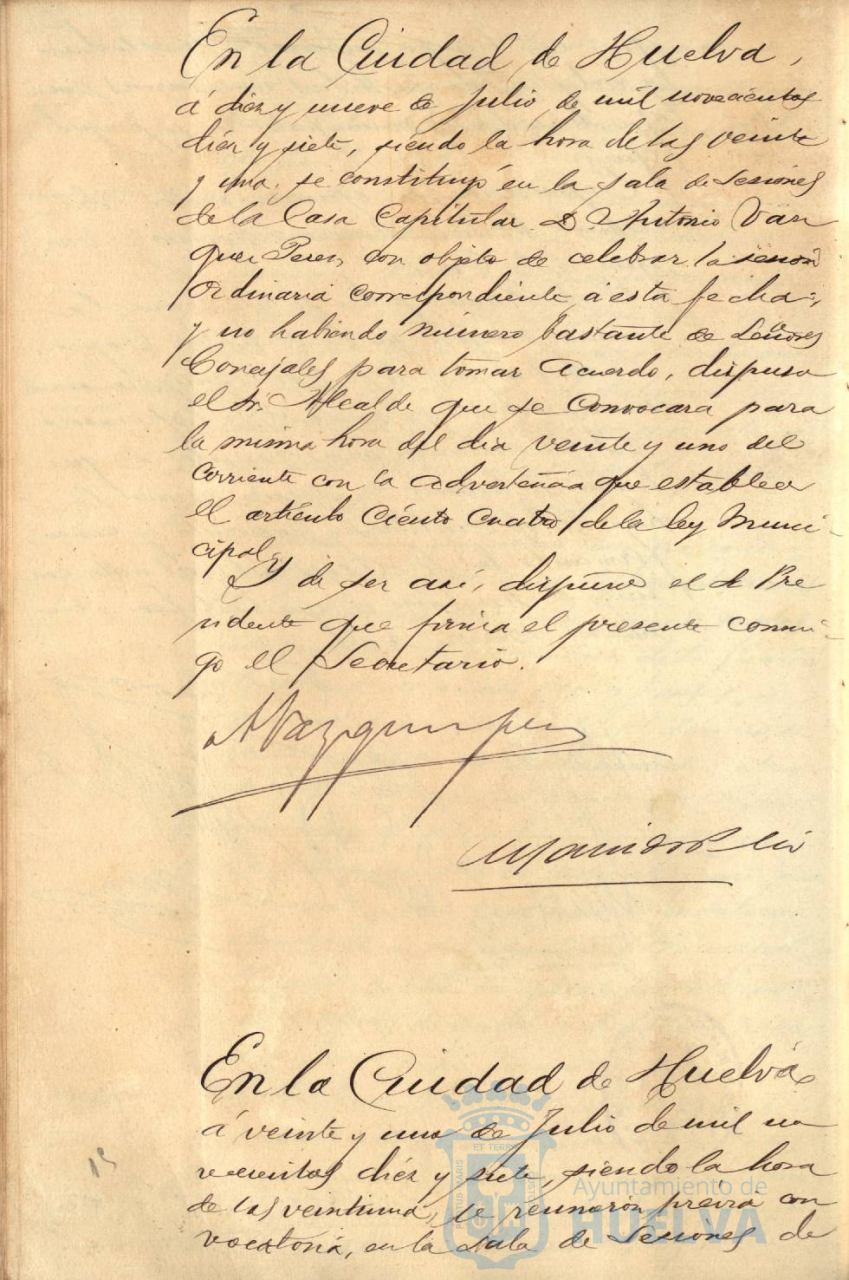 En la Ciudad de Huelva,
á diez y nueve de Julio, de mil novecientos
diez y siete, siendo la hora de las veinte
y una, se constituyó en la sala de Sesiones
de la Casa Capitular D. Antonio Vaz
quez Perez, con objeto de celebrar la sesion
Ordinaria correspondiente á esta fecha;
y no habiendo número bastante de Señores
Concejales para tomar acuerdo, dispuso
el Sr. Alcalde que se convocara para
la misma hora del dia veinte y uno del
corriente con la advertencia que establece
el artículo Ciento Cuatro de la ley Muni-
cipal.
Y de ser así, dispuso el Pre
sidente que firma el presente conmi-
go el Secretario.
A Vazquez Perez
En la Ciudad de Huelva
á veinte y uno de Julio de mil no
vecientos diez y siete, siendo la hora
de las veintiuna, se reunieron previa con
vocatoria, en la Sala de Sesiones de
15
Ayuntamiento de
HUELVA